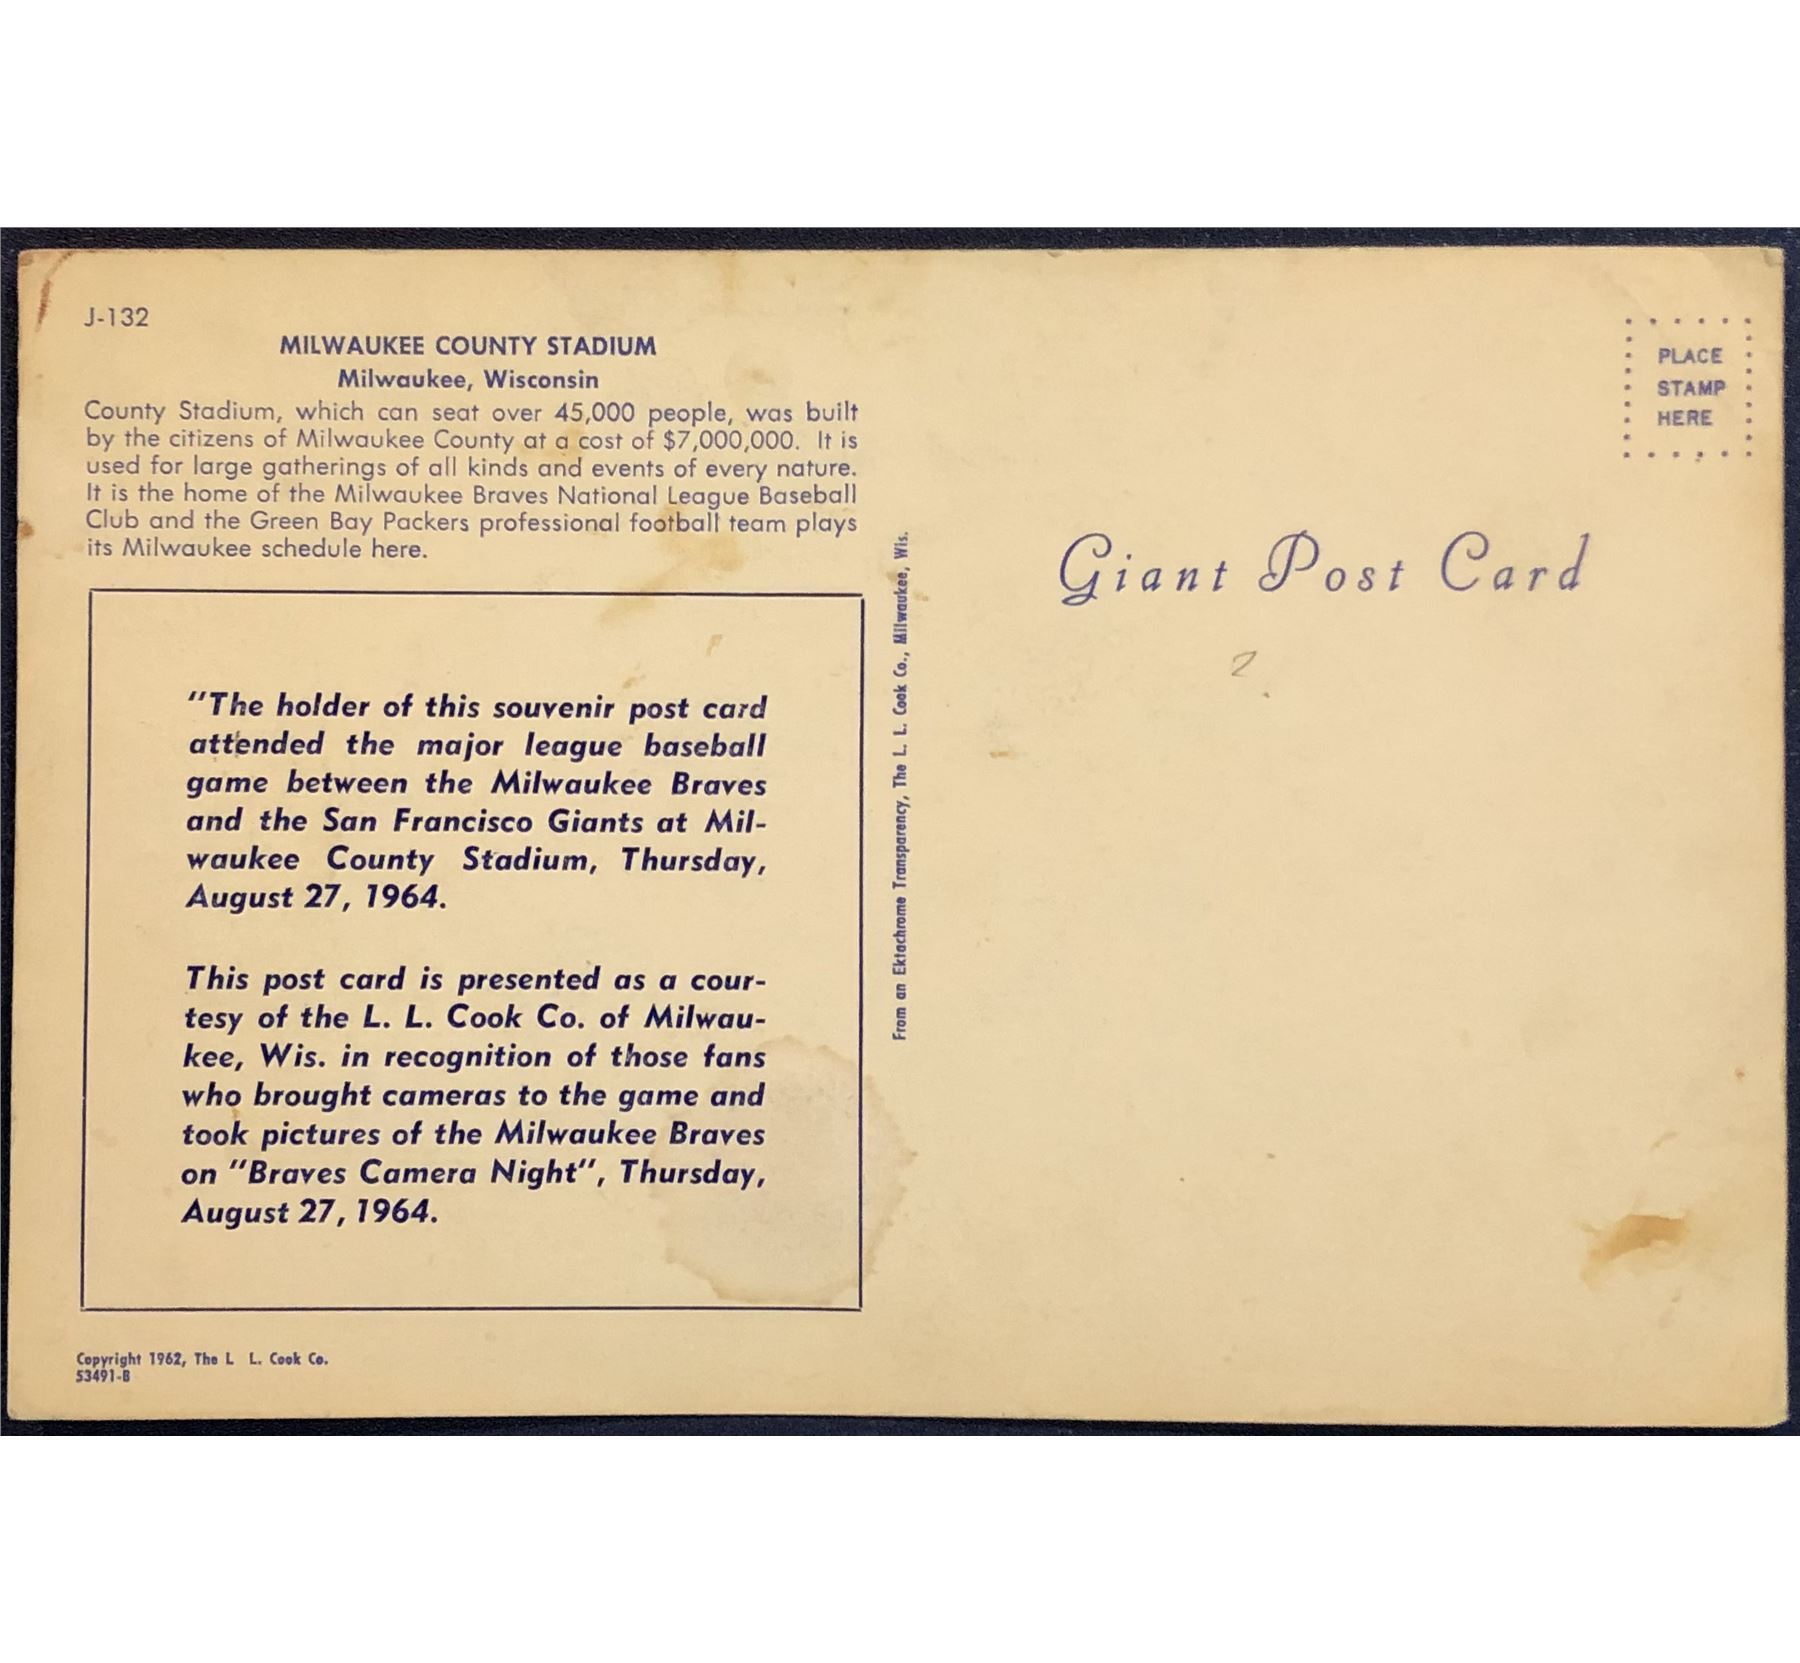 J-132
MILWAUKEE COUNTY STADIUM
Milwaukee, Wisconsin
County Stadium, which can seat over 45,000 people, was built
by the citizens of Milwaukee County at a cost of $7,000,000. It is
used for large gatherings of all kinds and events of every nature.
It is the home of the Milwaukee Braves National League Baseball
Club and the Green Bay Packers professional football team plays
its Milwaukee schedule here.
"The holder of this souvenir post card
attended the major league baseball
game between the Milwaukee Braves
and the San Francisco Giants at Mil-
waukee County Stadium, Thursday,
August 27, 1964.
This post card is presented as a cour-
tesy of the L. L. Cook Co. of Milwau-
kee, Wis. in recognition of those fans
who brought cameras to the game and
took pictures of the Milwaukee Braves
on "Braves Camera Night", Thursday,
August 27, 1964.
Copyright 1962, The L L. Cook Co.
53491-B
From an Ektachrome Transparency, The L. L. Cook Co., Milwaukee, Wis.
PLACE
STAMP
HERE
Giant Post Card
2